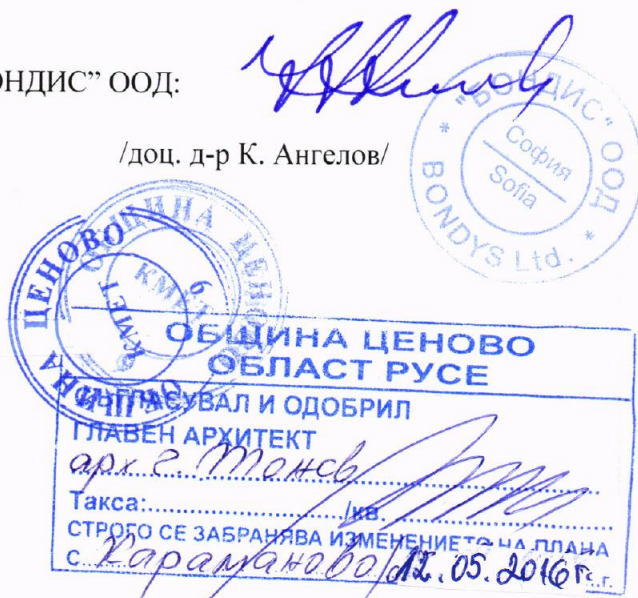 ОНДИС” ООД:
/доц. д-р К. Ангелов/
"БОНДИС" ООД
София
Sofia
* BONDYS Ltd. *
ОБЩИНА ЦЕНОВО
КМЕТ
6
ОБЩИНА ЦЕНОВО
КМЕТ
6
ОБЩИНА ЦЕНОВО
ОБЛАСТ РУСЕ
СЪГЛАСУВАЛ И ОДОБРИЛ
ГЛАВЕН АРХИТЕКТ
арх. г.
Такса:............/кв
СТРОГО СЕ ЗАБРАНЯВА ИЗМЕНЕНИЕТО НА ПЛАНА
с. Караманово/12.05.2016 г.